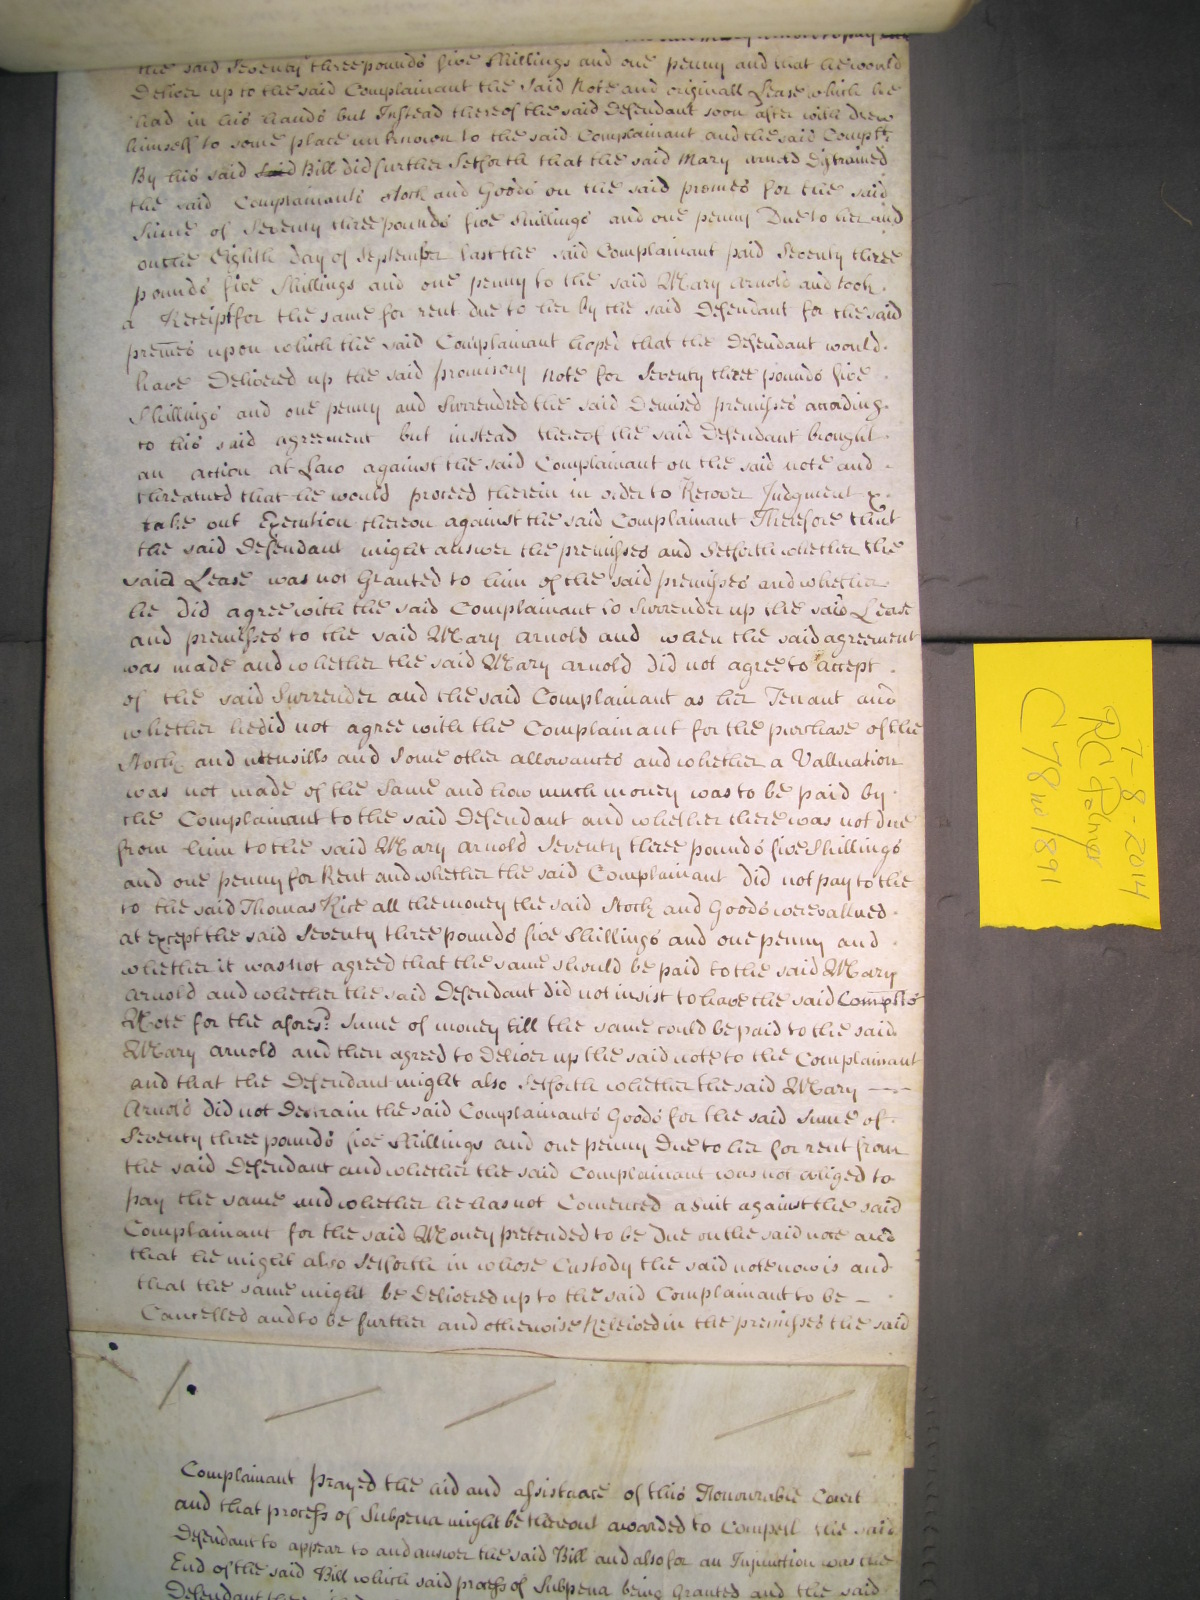 the said Seventy three pounds five Shillings and one penny and that he would
Deliver up to the said Complainant the said Note and originall Lease which he
had in his hands but Instead thereof the said Defendant soon after with drew
himself to some place unknown to the said Complainant and the said Compt.
By his said Bill did further Setforth that the said Mary Arnold Distrained
the said Complainants Stock and Goods on the said premes for the said
Sume of Seventy three pounds five Shillings and one penny Due to her and
on the Eighth Day of September last the said Complainant paid Seventy three
pounds five Shillings and one penny to the said Mary Arnold and took.
a Receipt for the same for rent due to her by the said Defendant for the said
premes upon which the said Complainant hoped that the Defendant would.
have Delivered up the said promisory note for Seventy three pounds five
Shillings and one penny and Surrendred the said Demised premisses according.
to his said agreement but instead thereof the said Defendant brought.
an action at Law against the said Complainant on the said note and.
threatned that he would proceed therein in order to Recover Judgment &.
take out Execution thereon against the said Complainant Therefore that
the said Defendant might answer the premisses and Setforth whether the
said Lease was not Granted to him of the said premisses and whether
he Did agree with the said Complainant to Surrender up the said Lease
and premisses to the said Mary Arnold and when the said agreement
was made and whether the said Mary Arnold Did not agree to accept.
of the said Surrender and the said Complainant as her Tenant and
whether he did not agree with the Complainant for the purchase of the
Stock and uttensills and Some other allowances and whether a Valluation
was not made of the Same and how much money was to be paid by.
the Complainant to the said Defendant and whether there was not due
from him to the said Mary Arnold Seventy three pounds five Shillings
and one penny for Rent and whether the said Complainant did not pay to the
to the said Thomas Rice all the money the said Stock and Goods were vallued.
at except the said Seventy three pounds five Shillings and one penny and.
whether it was not agreed that the same should be paid to the said Mary
Arnold and whether the said Defendant did not insist to have the said Complts
Note for the aforesd. Sume of money till the same could be paid to the said
Mary Arnold and then agreed to Deliver up the said note to the Complainant
and that the Defendant might also Setforth whether the said Mary —
Arnold did not Destrain the said Complainants Goods for the said Sume of
Seventy three pounds five Shillings and one penny Due to her for rent from
the said Defendant and whether the said Complainant was not obliged to
pay the same and whether he has not Comenced a Suit against the said
Complainant for the said Money pretended to be Due on the said note and
that he might also Setforth in whose Custody the said note now is and
that the same might be Delivered up to the said Complainant to be —
Cancelled and to be further and otherwise Releived in the premisses the said
Complainant prayed the aid and assistance of this Honourable Court
and that process of Subpena might be thereout awarded to Compell the said
Defendant to appear to and answer the said Bill and also for an Injunction was the
End of the said Bill which said process of Subpena being Granted and the said
Defendant
7-8-2014
RC Palmer
C 78 no 1891